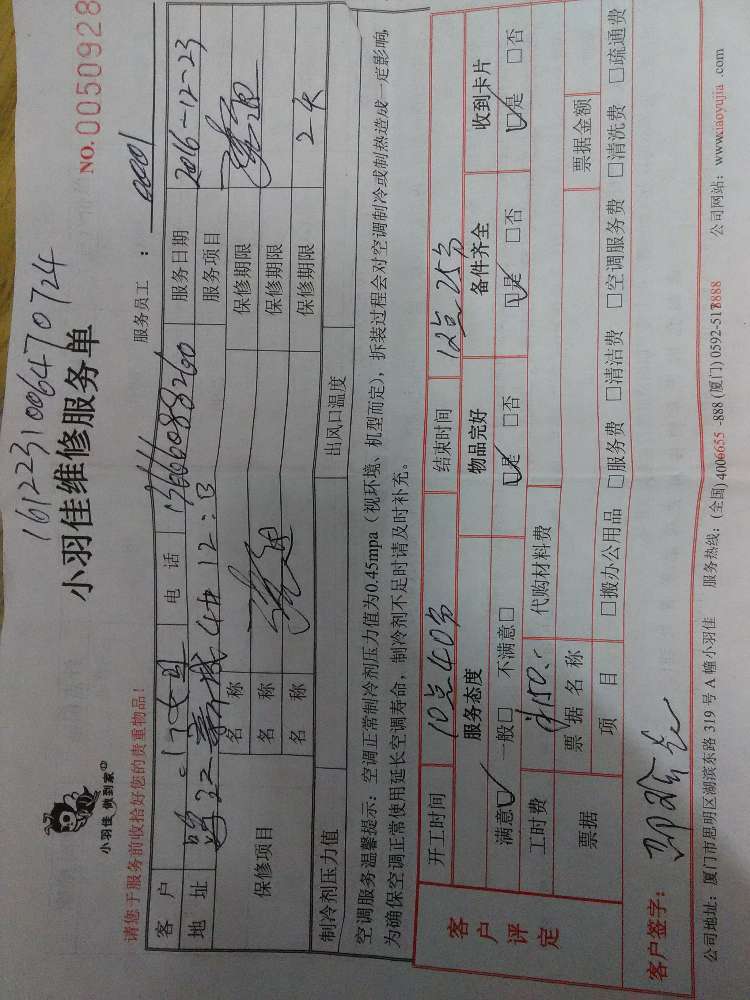 1612231006470724
小羽佳 俩到家
小羽佳维修服务单
NO.0050928
请您于服务前收拾好您的贵重物品!
服务员工: 0001
客户 女士 电话 服务日期 2016-12-23
地址 新城 服务项目
保修项目 名称 保修期限
名称 保修期限
名称 保修期限 2天
制冷剂压力值 出风口温度
空调服务温馨提示:空调正常制冷剂压力值为0.45mpa(视环境、机型而定),拆装过程会对空调制冷或制热造成一定影响,
为确保空调正常使用延长空调寿命,制冷剂不足时请及时补充。
客户评定
开工时间 10点40分 结束时间 12点25分
服务态度 物品完好 备件齐全 收到卡片
满意☑ 一般□ 不满意□ ☑是 □否 ☑是 □否 ☑是 □否
工时费 150. 代购材料费
票据 票据名称 票据金额
项目 □搬办公用品 □服务费 □清洁费 □空调服务费 □清洗费 □疏通费
客户签字:
公司地址:厦门市思明区湖滨东路319号A幢小羽佳 服务热线:(全国)4006655-888(厦门)0592-5178888 公司网站:www.xiaoyujia.com